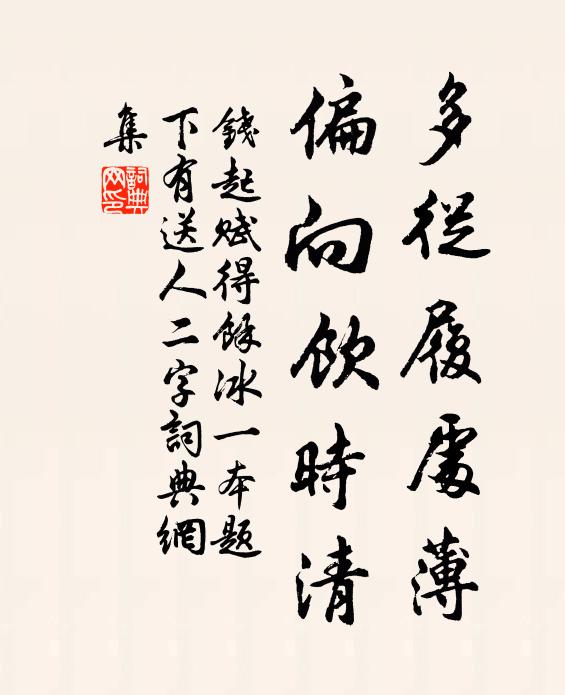 多從履處薄
偏向飲時清
錢起賦得餘冰一本題
下有送人二字詞典網
集
詞典网印